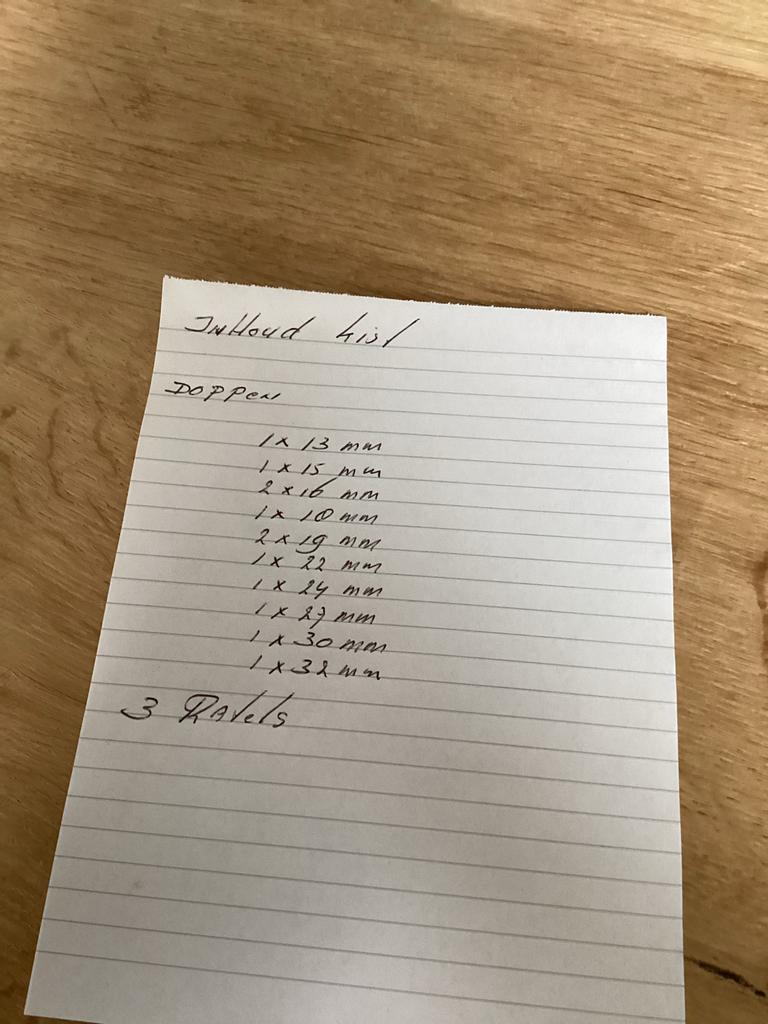 Inhoud kist
Doppen
1 x 13 mm
1 x 15 mm
2 x 16 mm
1 x 18 mm
2 x 19 mm
1 x 22 mm
1 x 24 mm
1 x 27 mm
1 x 30 mm
1 x 32 mm
3 Ratels